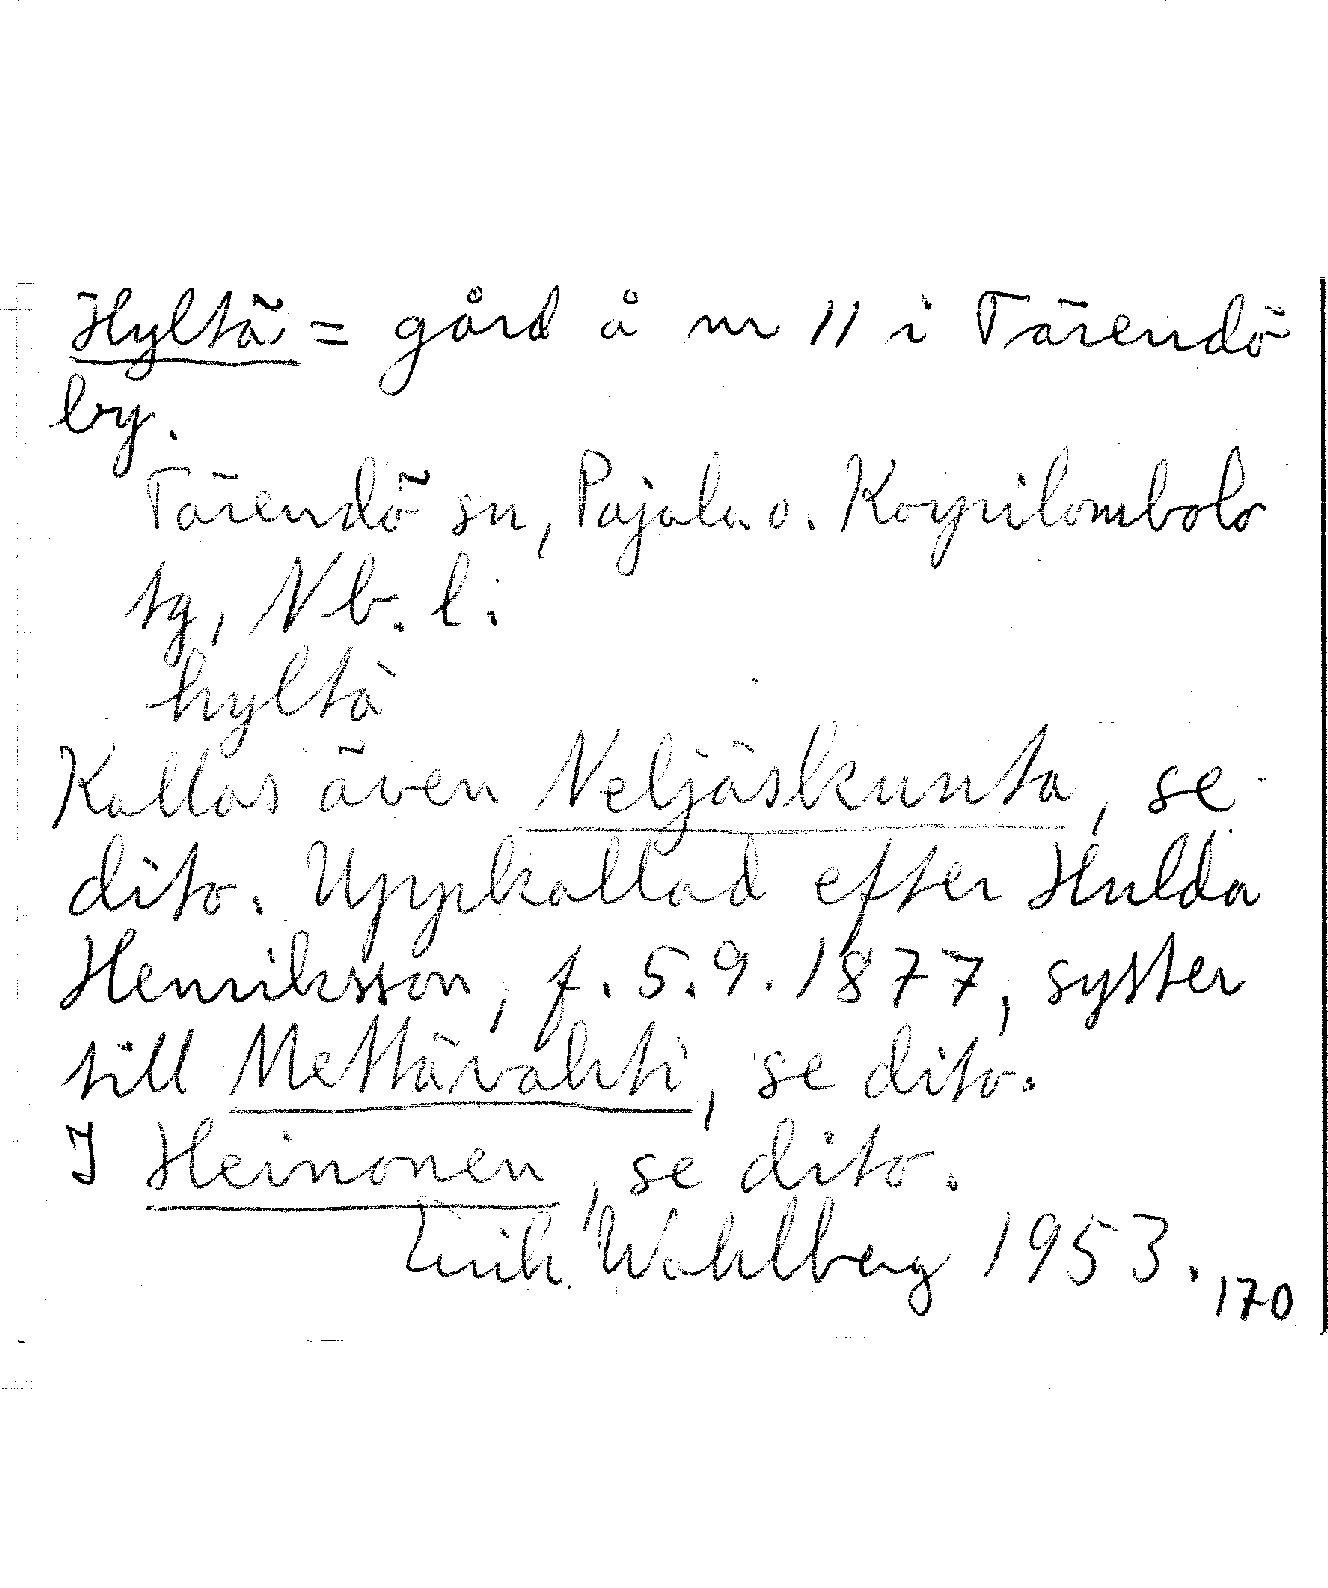 Hyltä = gård å nr 11 i Tärendö
by.
Tärendö sn, Pajala o. Korpilombolo
tg, Nb. l.
hyltä
Kallas även Neljäskunta, se
dito. Uppkallad efter Hulda
Henriksson, f. 5.9.1877, syster
till Mettävahti, se dito.
I Heinonen, se dito.
Erik Wahlberg 1953.
170